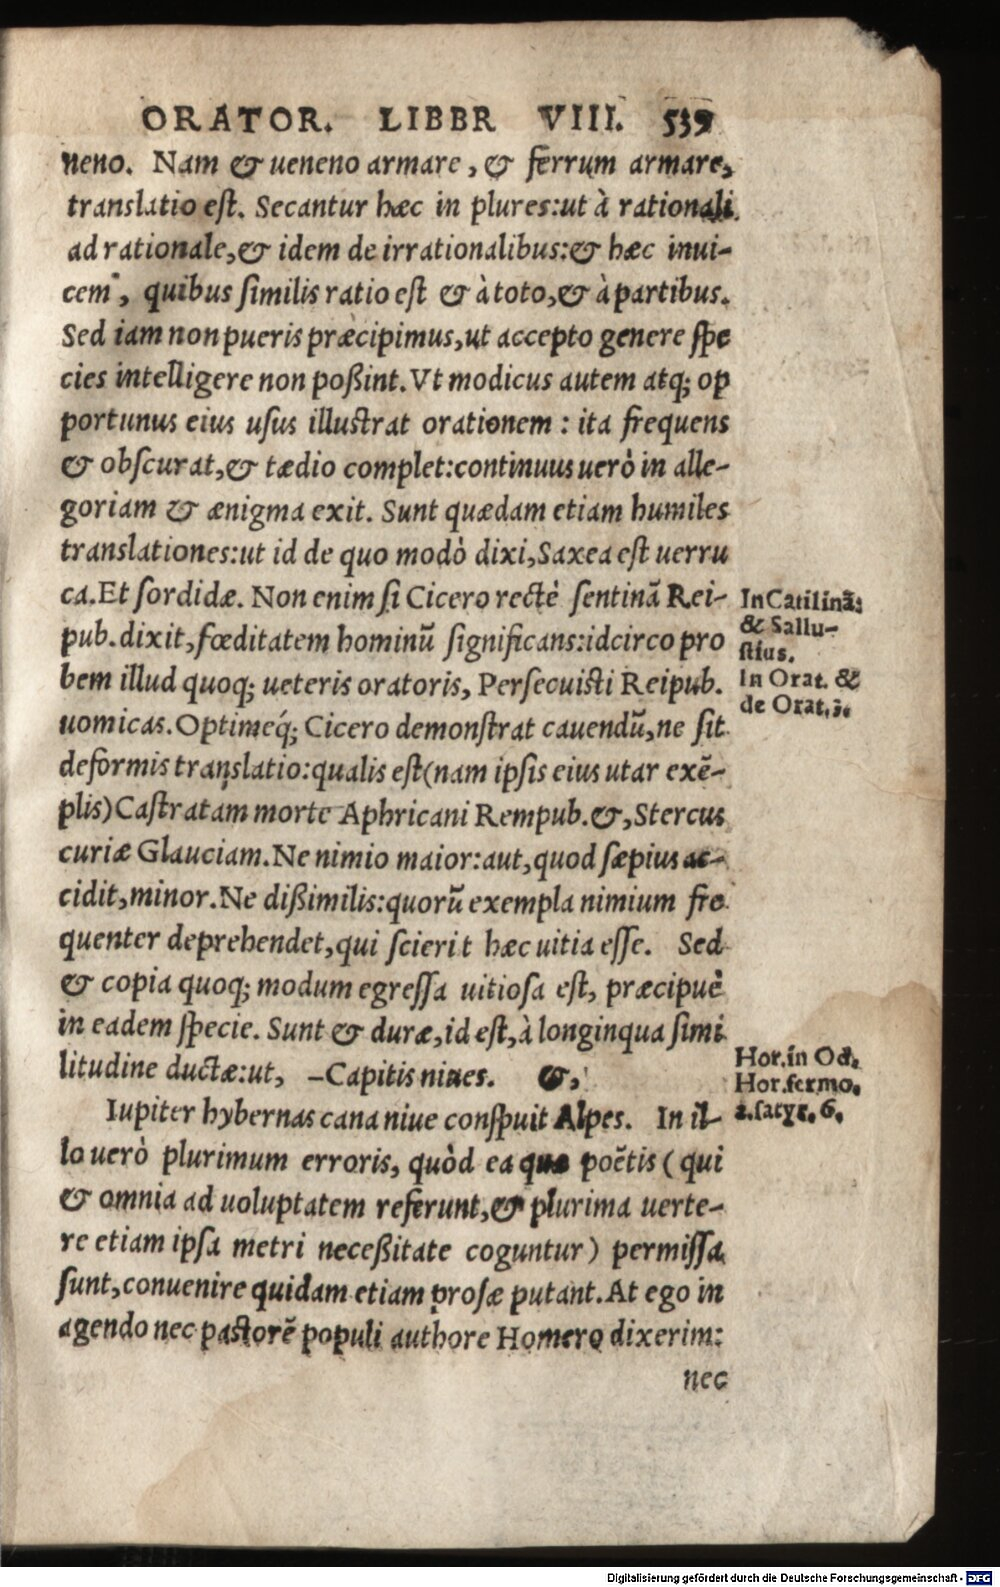 ORATOR. LIBBR VIII. 539
neno. Nam & ueneno armare, & ferrum armare,
translatio est. Secantur hæc in plures: ut à rationali
ad rationale, & idem de irrationalibus: & hæc inui-
cem, quibus similis ratio est & à toto, & à partibus.
Sed iam non pueris præcipimus, ut accepto genere spe
cies intelligere non poßint. Vt modicus autem atq; op
portunus eius usus illustrat orationem: ita frequens
& obscurat, & tædio complet: continuus uerò in alle-
goriam & ænigma exit. Sunt quædam etiam humiles
translationes: ut id de quo modò dixi, Saxea est uerru
ca. Et sordidæ. Non enim si Cicero rectè sentinã Rei-
pub. dixit, fœditatem hominũ significans: idcirco pro
bem illud quoq; ueteris oratoris, Persecuisti Reipub.
uomicas. Optimeq́; Cicero demonstrat cauendũ, ne sit
deformis translatio: qualis est (nam ipsis eius utar exẽ-
plis) Castratam morte Aphricani Rempub. &, Stercus
curiæ Glauciam. Ne nimio maior: aut, quod sæpius ac-
cidit, minor. Ne dißimilis: quorũ exempla nimium fre
quenter deprehendet, qui scierit hæc uitia esse. Sed
& copia quoq; modum egressa uitiosa est, præcipuè
in eadem specie. Sunt & duræ, id est, à longinqua simi
litudine ductæ: ut, -Capitis niues. &,
Iupiter hybernas cana niue conspuit Alpes. In il-
lo uerò plurimum erroris, quòd ea quæ poëtis (qui
& omnia ad uoluptatem referunt, & plurima uerte-
re etiam ipsa metri neceßitate coguntur) permissa
sunt, conuenire quidam etiam prosæ putant. At ego in
agendo nec pastorẽ populi authore Homero dixerim:
nec
In Catilinã:
& Sallu-
stius.
In Orat. &
de Orat. 3.
Hor. in Od.
Hor. sermo.
2. satyr. 6.
Digitalisierung gefördert durch die Deutsche Forschungsgemeinschaft - DFG